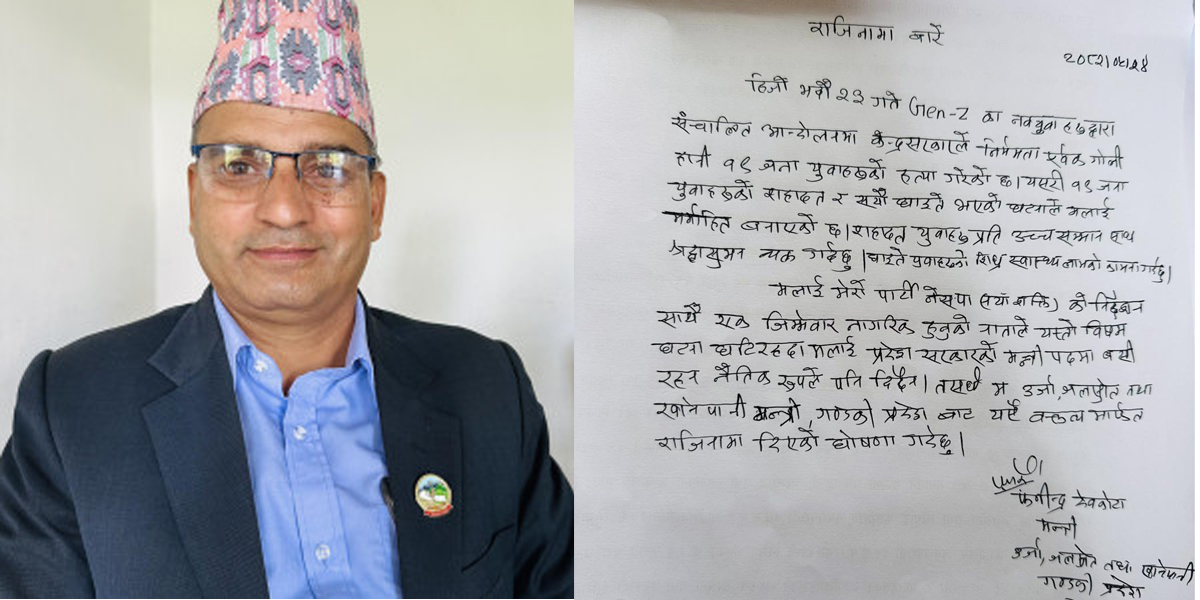 राजिनामा बारे
२०८२।०५।२४
हिजो भदौ २३ गते Gen-Z का नवयुवाहरुद्वारा
संचालित आन्दोलनमा केन्द्रसरकारले निर्ममता पूर्वक गोली
हानी १९ जना युवाहरुको हत्या गरेको छ। यसरी १९ जना
युवाहरुको शहादत र सयौ घाइते भएको घटनाले मलाई
मर्माहित बनाएको छ। शहादत युवाहरु प्रति उच्च सम्मान साथ
श्रद्धासुमन व्यक्त गर्दछु। घाइते युवाहरुको शिघ्र स्वास्थ्य लाभको कामना गर्दछु।
मलाई मेरो पार्टी नेसपा (नयाँ शक्ति) को निर्देशन
साथै एक जिम्मेवार नागरिक हुनुको नाताले यस्तो विषम
घटना घटिरहदा मलाई प्रदेश सरकारको मन्त्री पदमा बसी
रहन नैतिक रुपले पनि दिदैन। तसर्थ म उर्जा, जलस्रोत तथा
खानेपानी मन्त्री, गण्डकी प्रदेश बाट यहि वक्तव्य मार्फत
राजिनामा दिएको घोषणा गर्दछु।
फणीन्द्र देवकोटा
मन्त्री
उर्जा, जलस्रोत तथा खानेपानी
गण्डकी प्रदेश